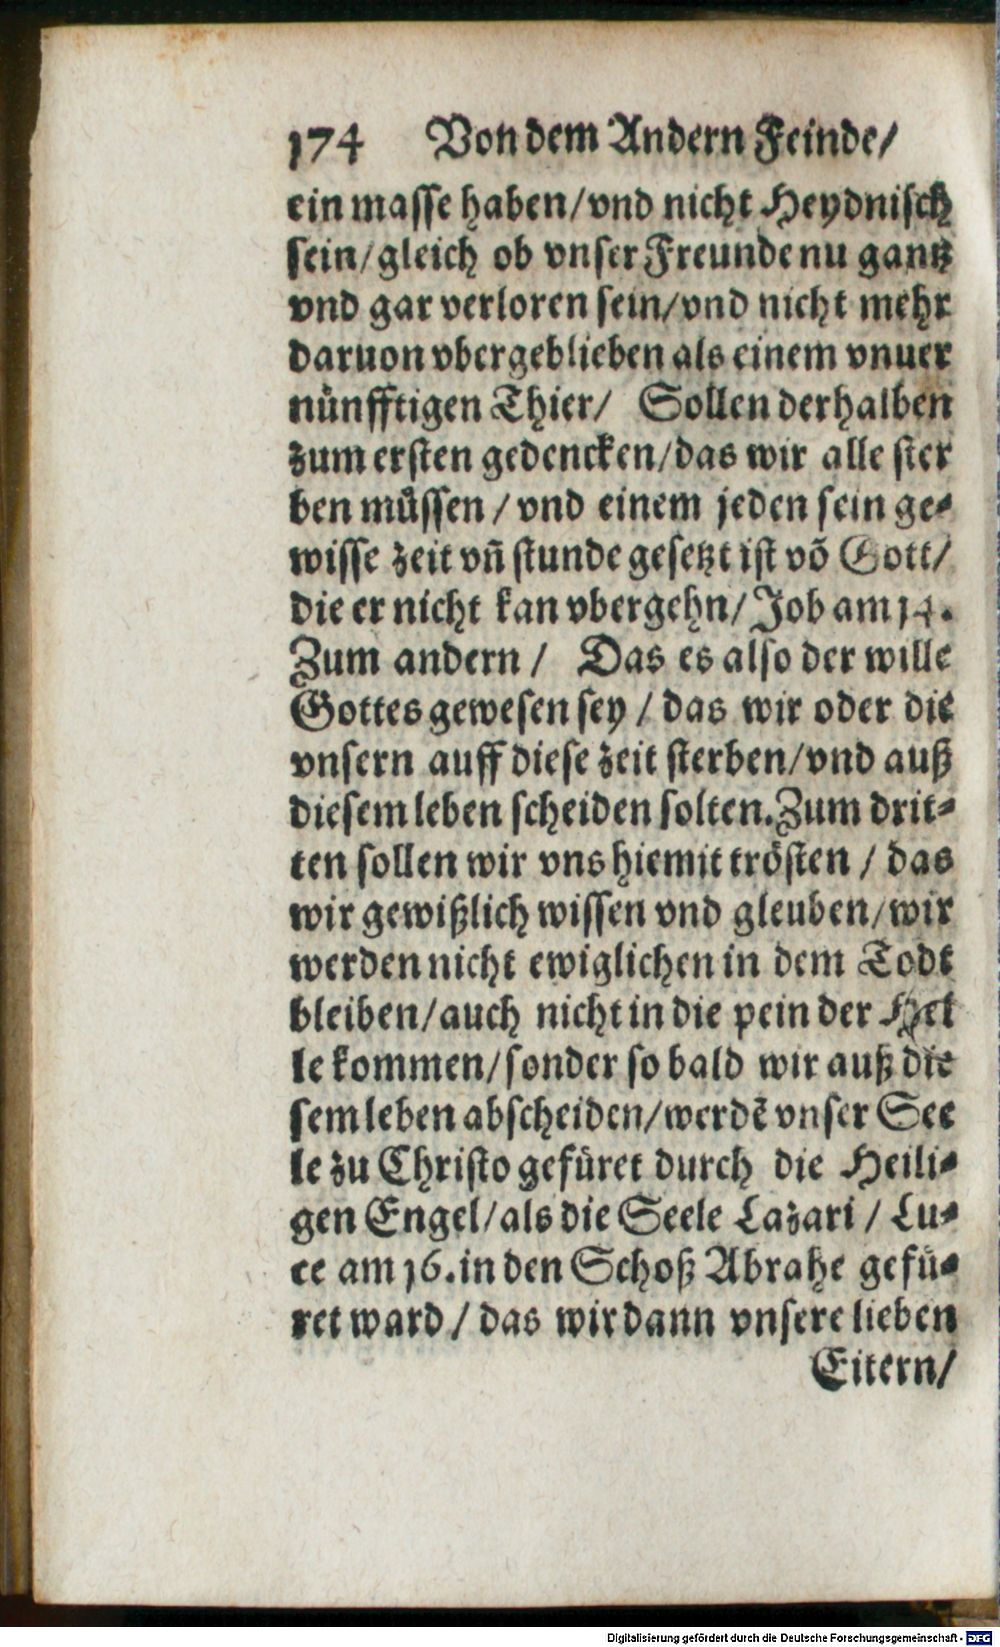 174 Von dem Andern Feinde/
ein masse haben/vnd nicht Heydnisch
sein/gleich ob vnser Freunde nu gantz
vnd gar verloren sein/vnd nicht mehr
daruon vbergeblieben als einem vnuer
nünfftigen Thier/ Sollen derhalben
zum ersten gedencken/das wir alle ster
ben müssen/vnd einem jeden sein ge-
wisse zeit vñ stunde gesetzt ist võ Gott/
die er nicht kan vbergehn/Job am 14.
Zum andern/ Das es also der wille
Gottes gewesen sey/das wir oder die
vnsern auff diese zeit sterben/vnd auß
diesem leben scheiden solten. Zum drit-
ten sollen wir vns hiemit trösten/das
wir gewißlich wissen vnd gleuben/wir
werden nicht ewiglichen in dem Todt
bleiben/auch nicht in die pein der Hel
le kommen/sonder so bald wir auß die
sem leben abscheiden/werdẽ vnser See
le zu Christo gefüret durch die Heili-
gen Engel/als die Seele Lazari/Lu-
ce am 16. in den Schoß Abrahe gefü-
ret ward/das wir dann vnsere lieben
Eltern/
Digitalisierung gefördert durch die Deutsche Forschungsgemeinschaft - DFG